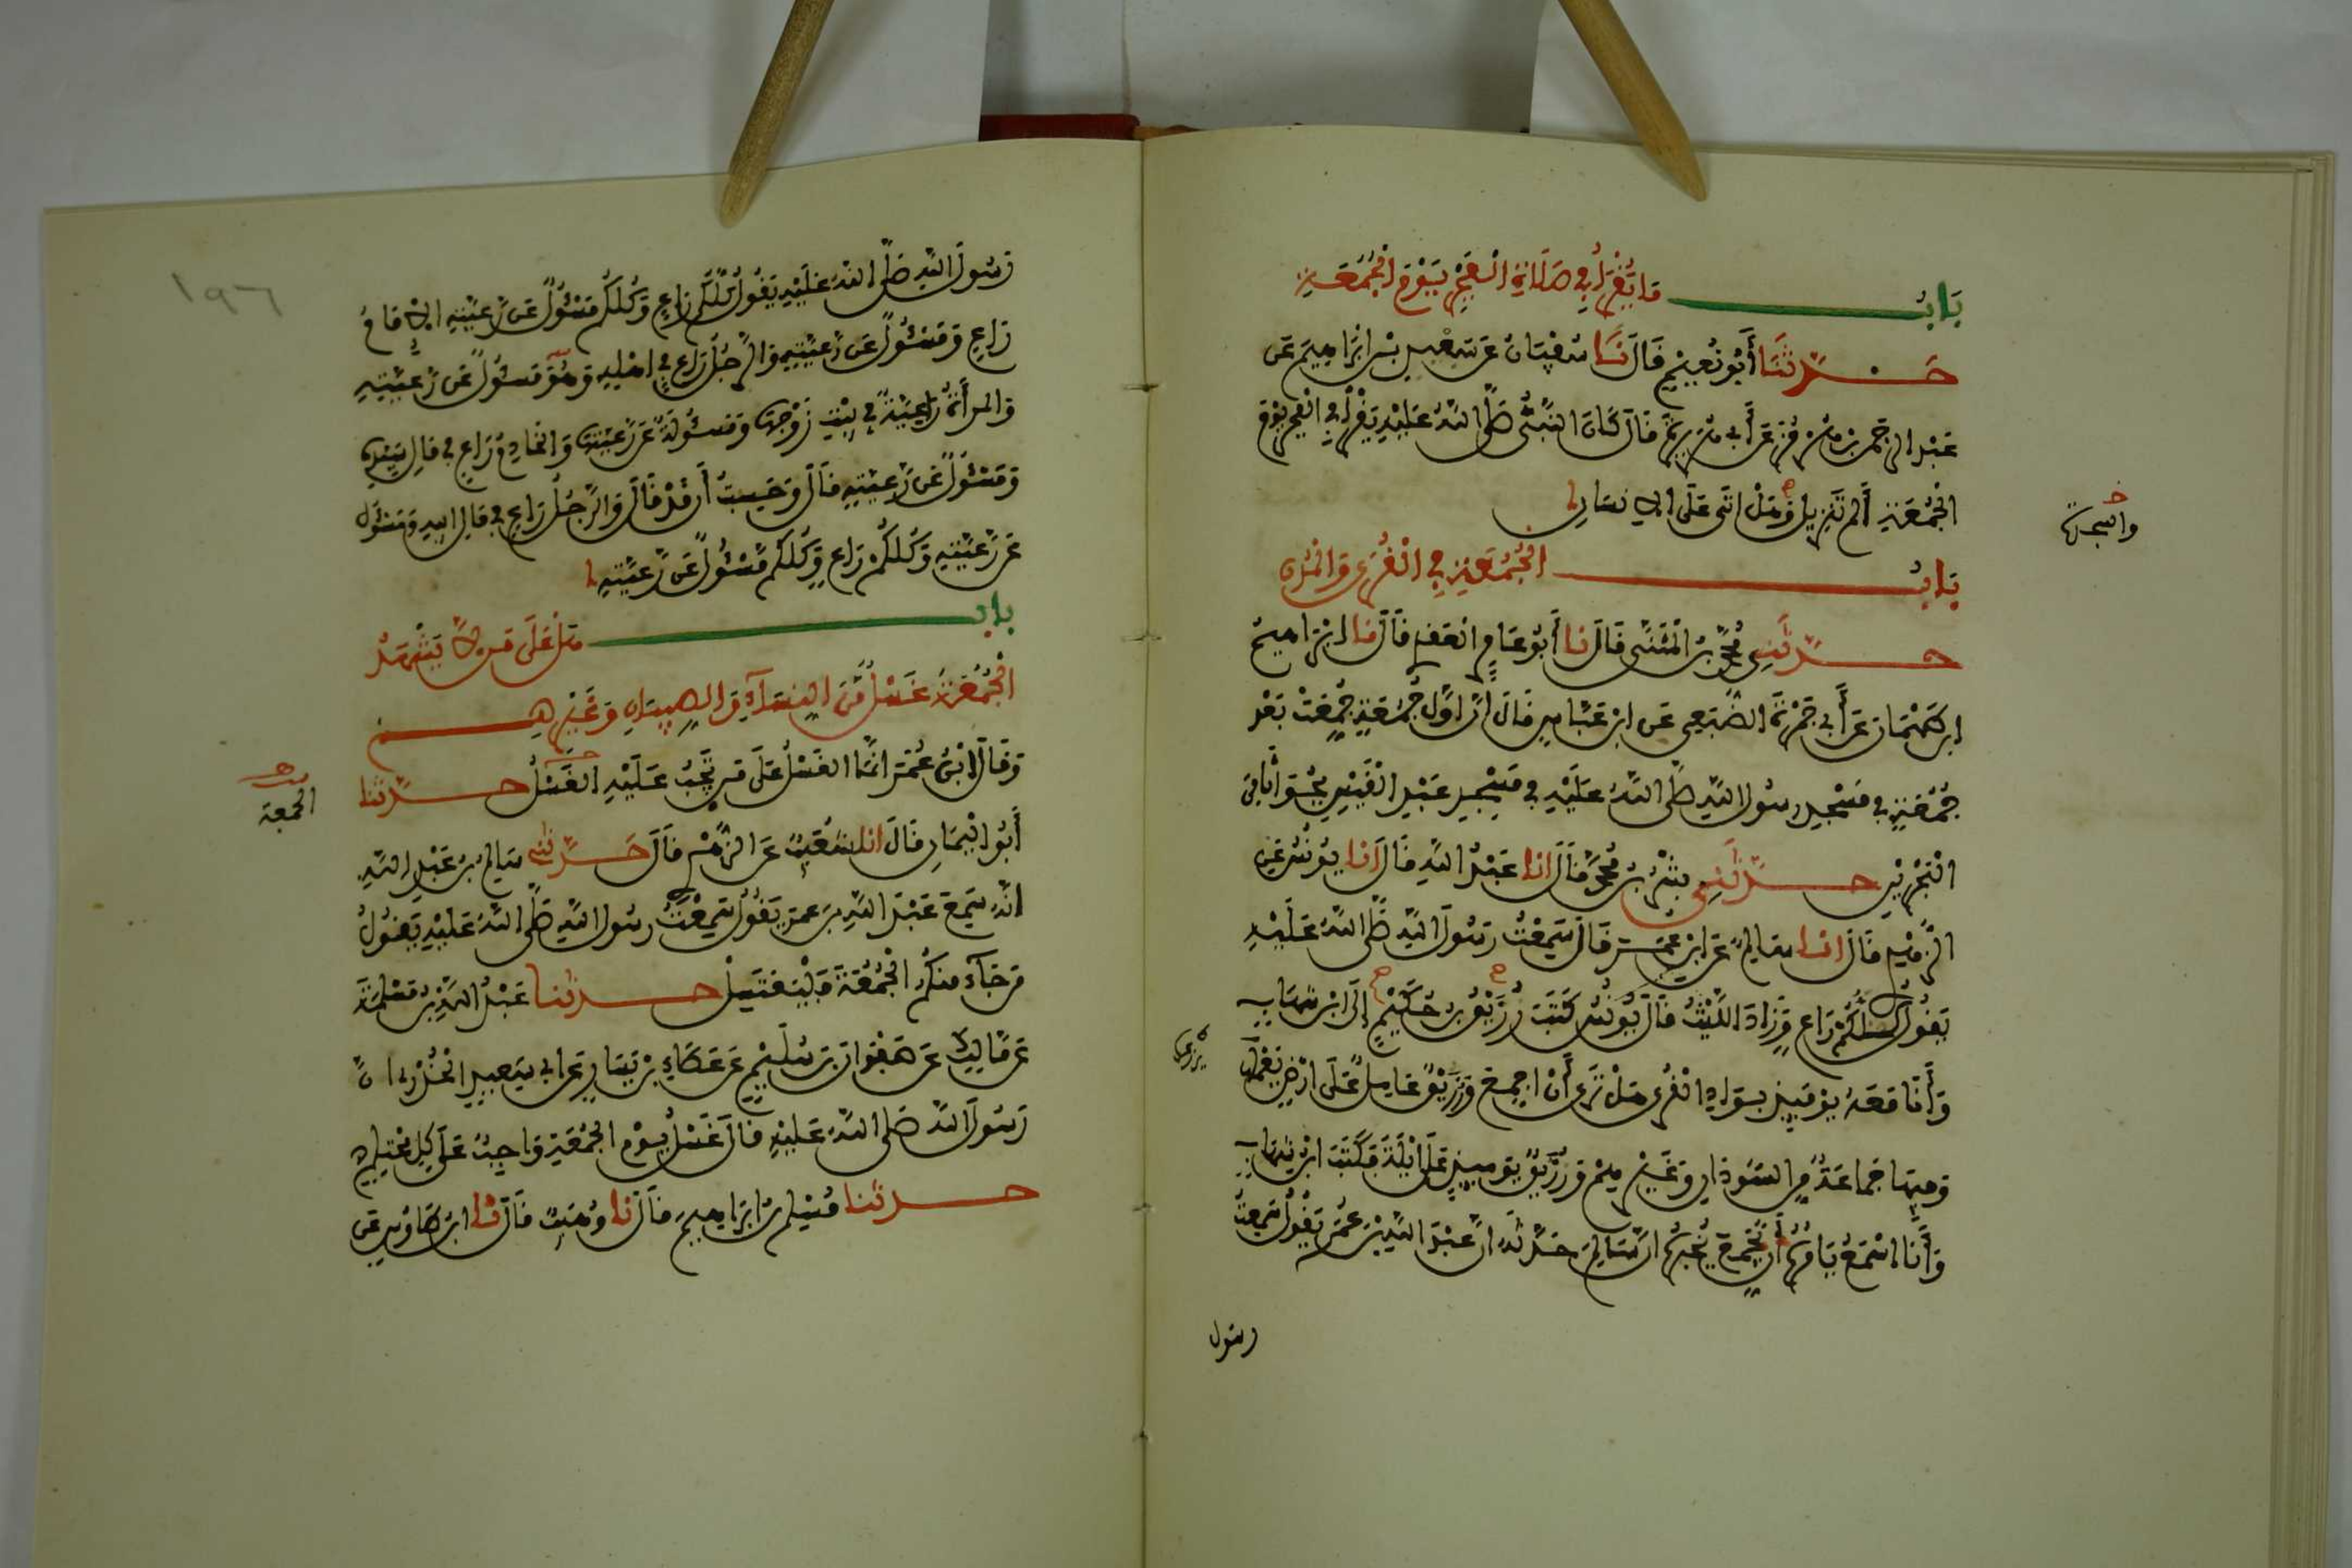 بَابُ مَا يُقْرَأُ فِي صَلَاةِ الْفَجْرِ يَوْمَ الْجُمُعَةِ
حَدَّثَنَا أَبُو نُعَيْمٍ قَالَ نَا سُفْيَانُ عَن سَعْدِ بْنِ إِبْرَاهِيمَ عَن
عَبْدِ الرَّحْمَنِ بْنِ هُرْمُزَ عَن أَبِي هُرَيْرَةَ قَالَ كَانَ النَّبِيُّ صَلَّى اللَّهُ عَلَيْهِ يَقْرَأُ فِي الْفَجْرِ يَوْمَ
الْجُمُعَةِ أَلَم تَنزِيلُ وَهَلْ أَتَى عَلَى الْإِنسَانِ
والسجدة
بَابُ الْجُمُعَةِ فِي الْقُرَى وَالْمُدُنِ
حَدَّثَنِي مُحَمَّدُ بْنُ الْمُثَنَّى قَالَ نَا أَبُو عَامِرٍ الْعَقَدِيُّ قَالَ نَا إِبْرَاهِيمُ
ابْنُ طَهْمَانَ عَن أَبِي جَمْرَةَ الضُّبَعِيِّ عَنِ ابْنِ عَبَّاسٍ قَالَ إِنَّ أَوَّلَ جُمُعَةٍ جُمِّعَتْ بَعْدَ
جُمُعَةٍ فِي مَسْجِدِ رَسُولِ اللَّهِ صَلَّى اللَّهُ عَلَيْهِ فِي مَسْجِدِ عَبْدِ الْقَيْسِ بِجُوَاثَى مِنَ
الْبَحْرَيْنِ حَدَّثَنِي بِشْرُ بْنُ مُحَمَّدٍ قَالَ أَنَا عَبْدُ اللَّهِ قَالَ أَنَا يُونُسُ عَنِ
الزُّهْرِيِّ قَالَ أَنَا سَالِمٌ عَنِ ابْنِ عُمَرَ قَالَ سَمِعْتُ رَسُولَ اللَّهِ صَلَّى اللَّهُ عَلَيْهِ
يَقُولُ كُلُّكُمْ رَاعٍ وَزَادَ اللَّيْثُ قَالَ يُونُسُ كَتَبَ رُزَيْقُ بْنُ حُكَيْمٍ إِلَى ابْنِ شِهَابٍ
وَأَنَا مَعَهُ يَوْمَئِذٍ بِوَادِي الْقُرَى هَلْ تَرَى أَنْ أُجَمِّعَ وَرُزَيْقٌ عَامِلٌ عَلَى أَرْضٍ يَعْمَلُهَا
وَفِيهَا جَمَاعَةٌ مِنَ السُّودَانِ وَغَيْرِهِمْ وَرُزَيْقٌ يَوْمَئِذٍ عَلَى أَيْلَةَ فَكَتَبَ ابْنُ شِهَابٍ
وَأَنَا أَسْمَعُ يَأْمُرُهُ أَن يُجَمِّعَ يُخْبِرُهُ أَنَّ سَالِمًا حَدَّثَهُ أَنَّ عَبْدَ اللَّهِ بْنَ عُمَرَ يَقُولُ سَمِعْتُ
رسول
١٩٦
رَسُولَ اللَّهِ صَلَّى اللَّهُ عَلَيْهِ يَقُولُ كُلُّكُمْ رَاعٍ وَكُلُّكُمْ مَسْئُولٌ عَن رَعِيَّتِهِ الْإِمَامُ
رَاعٍ وَمَسْئُولٌ عَن رَعِيَّتِهِ وَالرَّجُلُ رَاعٍ فِي أَهْلِهِ وَهُوَ مَسْئُولٌ عَن رَعِيَّتِهِ
وَالْمَرْأَةُ رَاعِيَةٌ فِي بَيْتِ زَوْجِهَا وَمَسْئُولَةٌ عَن رَعِيَّتِهَا وَالْخَادِمُ رَاعٍ فِي مَالِ سَيِّدِهِ
وَمَسْئُولٌ عَن رَعِيَّتِهِ قَالَ وَحَسِبْتُ أَن قَدْ قَالَ وَالرَّجُلُ رَاعٍ فِي مَالِ أَبِيهِ وَمَسْئُولٌ
عَن رَعِيَّتِهِ وَكُلُّكُمْ رَاعٍ وَكُلُّكُمْ مَسْئُولٌ عَن رَعِيَّتِهِ
باب هَلْ عَلَى مَن لَّا يَشْهَدُ
الْجُمُعَةَ غُسْلٌ مِّنَ النِّسَاءِ وَالصِّبْيَانِ وَغَيْرِهِمْ
وَقَالَ ابْنُ عُمَرَ إِنَّمَا الْغُسْلُ عَلَى مَن تَجِبُ عَلَيْهِ الْغُسْلُ حَدَّثَنَا
الجمعة
أَبُو الْيَمَانِ قَالَ أَنَا شُعَيْبٌ عَنِ الزُّهْرِيِّ قَالَ حَدَّثَنِي سَالِمُ بْنُ عَبْدِ اللَّهِ
أَنَّهُ سَمِعَ عَبْدَ اللَّهِ بْنَ عُمَرَ يَقُولُ سَمِعْتُ رَسُولَ اللَّهِ صَلَّى اللَّهُ عَلَيْهِ يَقُولُ
مَن جَاءَ مِنكُمُ الْجُمُعَةَ فَلْيَغْتَسِلْ حدثنا عَبْدُ اللَّهِ بْنُ مَسْلَمَةَ
عَن مَّالِكٍ عَن صَفْوَانَ بْنِ سُلَيْمٍ عَن عَطَاءِ بْنِ يَسَارٍ عَن أَبِي سَعِيدٍ الْخُدْرِيِّ أَنَّ
رَسُولَ اللَّهِ صَلَّى اللَّهُ عَلَيْهِ قَالَ غُسْلُ يَوْمِ الْجُمُعَةِ وَاجِبٌ عَلَى كُلِّ مُحْتَلِمٍ
حدثنا مُسْلِمُ بْنُ إِبْرَاهِيمَ قَالَ نَا وُهَيْبٌ قَالَ نَا ابْنُ طَاوُسٍ عَن